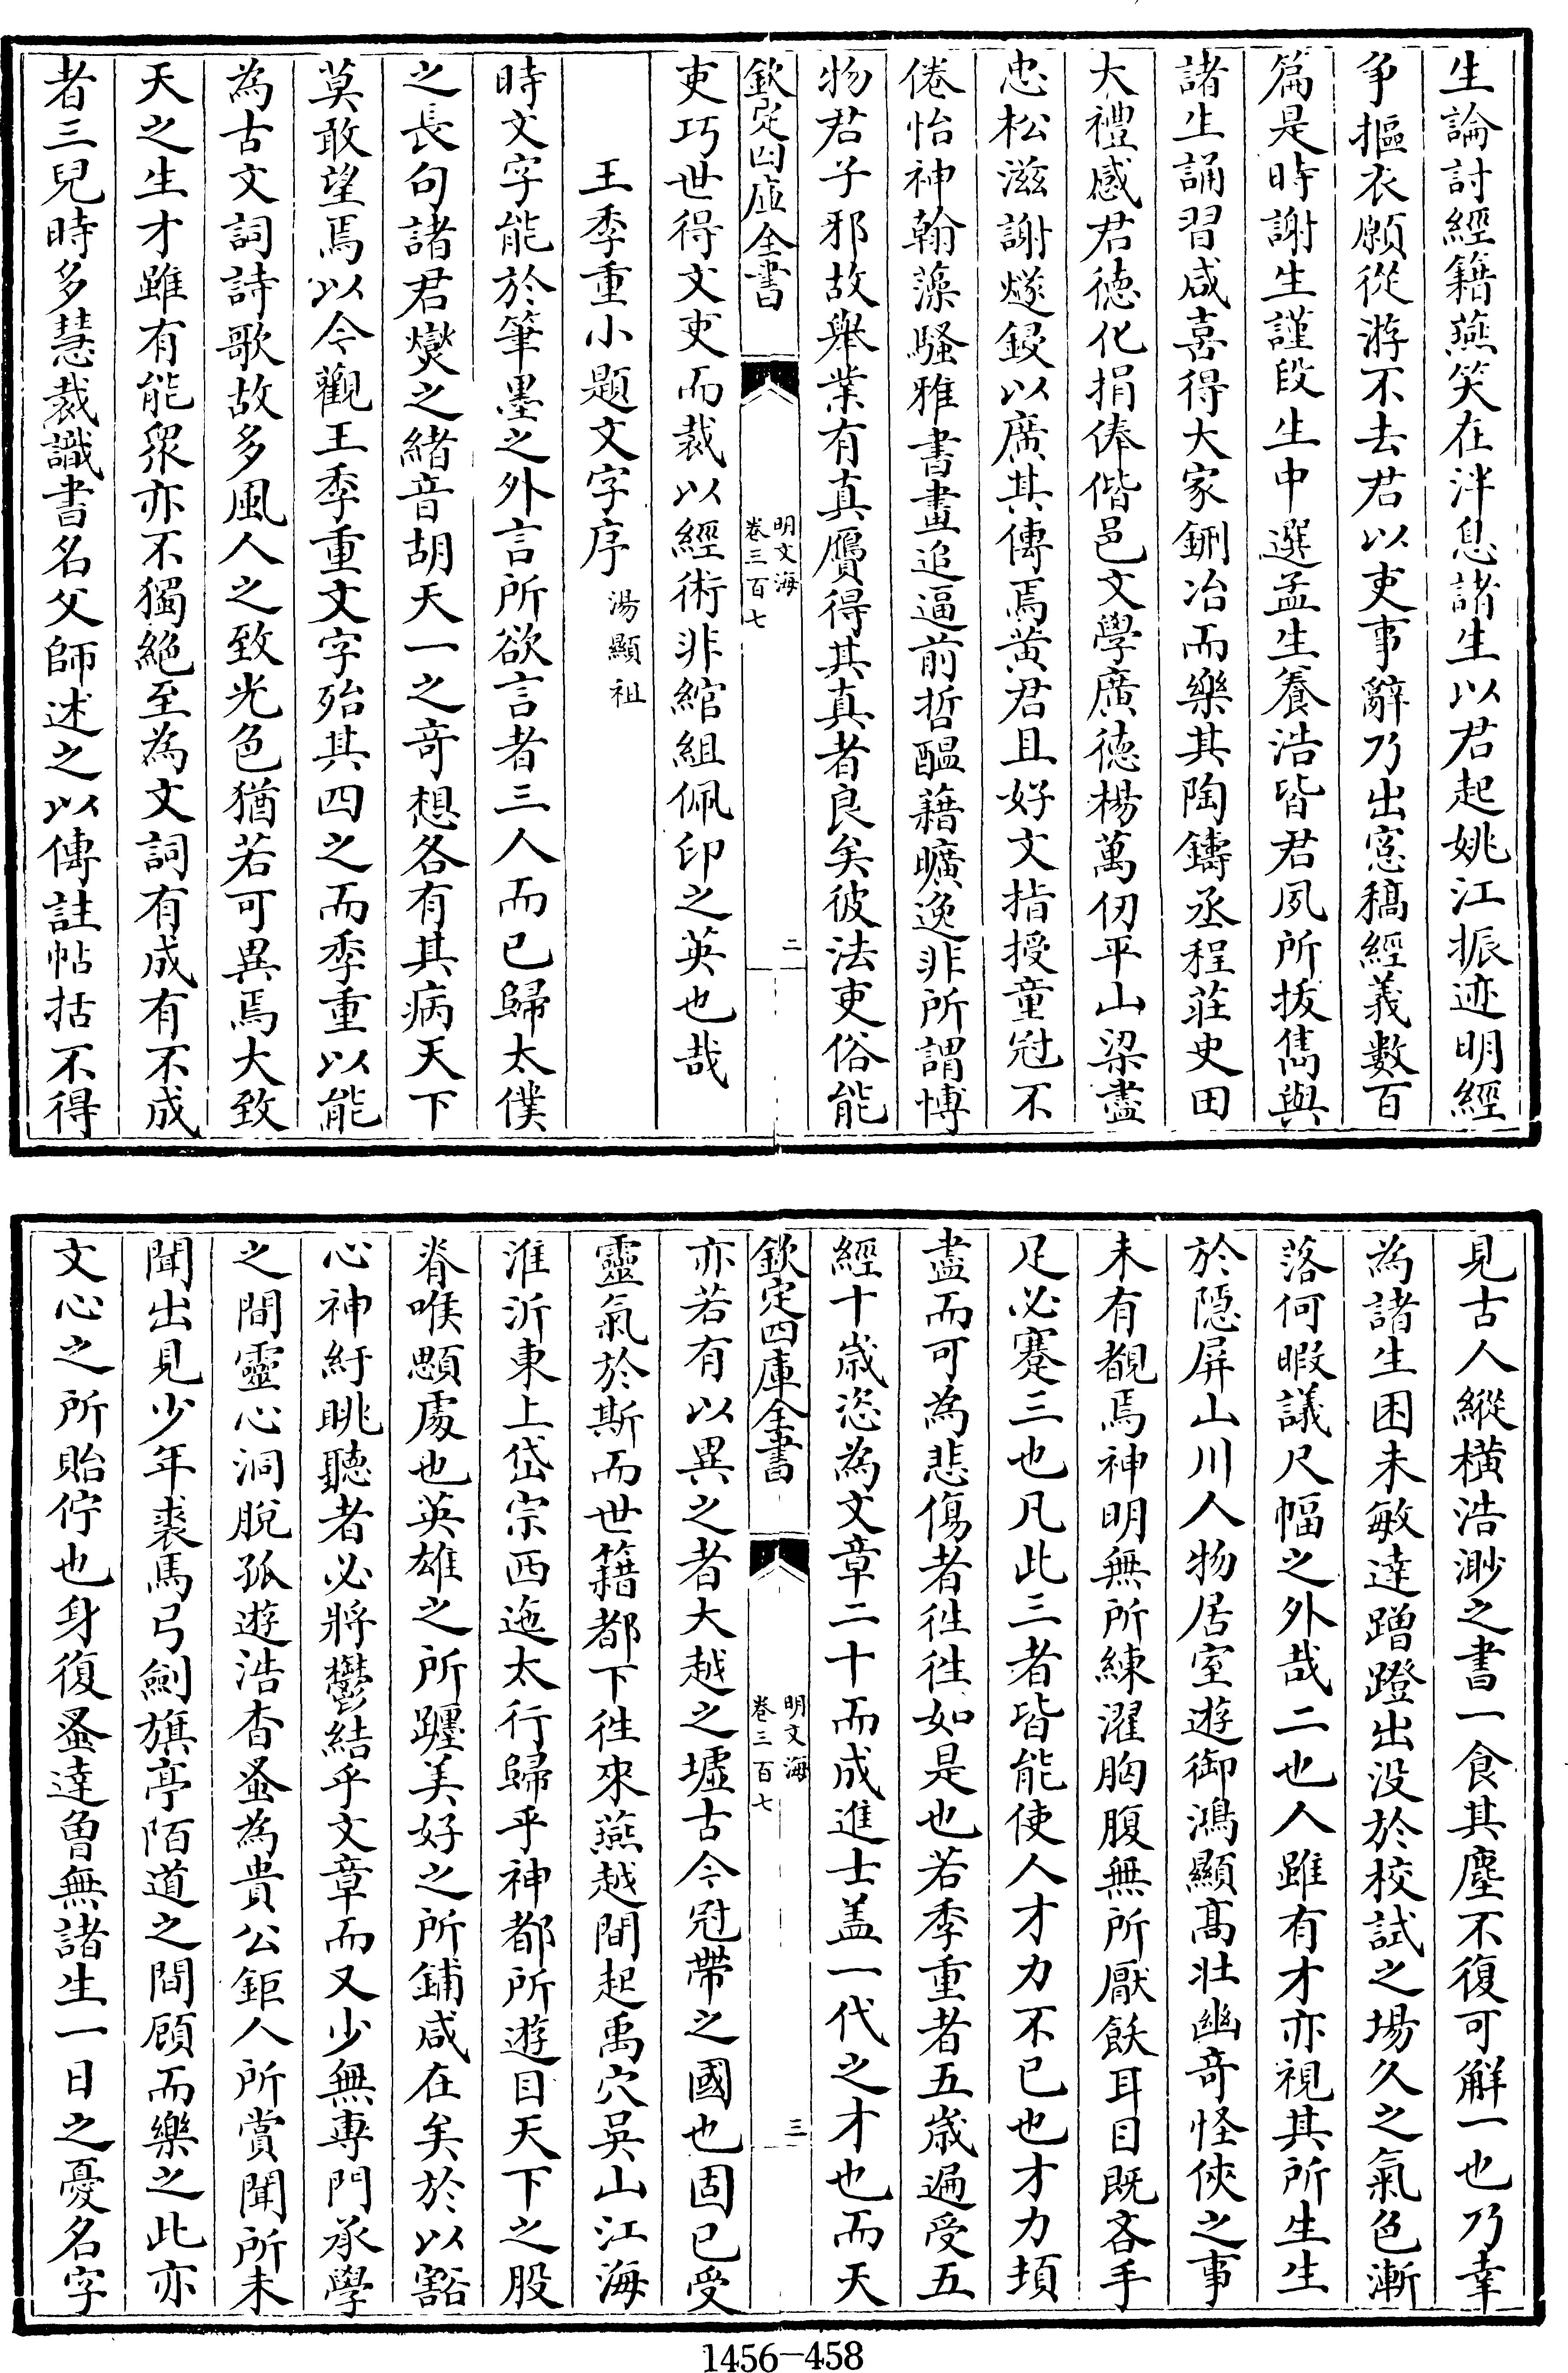 生論討經籍燕笑在泮息諸生以君起姚江振迹明經
争摳衣願從游不去君以吏事辭乃出窓稿經義數百
篇是時謝生謹段生中選孟生養浩皆君夙所拔雋與
諸生誦習咸喜得大家鉶冶而樂其陶鑄丞程莊史田
大禮感君德化捐俸偕邑文學廣德楊萬仞平山梁盡
忠松滋謝燧鋟以廣其傳焉黄君且好文指授童冠不
倦怡神翰藻騷雅書畫追逼前哲醖藉曠逸非所謂博
物君子邪故舉業有真贗得其真者良矣彼法吏俗能
欽定四庫全書
明文海
卷三百七
二
吏巧世得文吏而裁以經術非綰組佩印之英也哉
王季重小題文字序
湯顯祖
時文字能於筆墨之外言所欲言者三人而已歸太僕
之長句諸君燮之緒音胡天一之奇想各有其病天下
莫敢望焉以今觀王季重文字殆其四之而季重以能
為古文詞詩歌故多風人之致光色猶若可異焉大致
天之生才雖有能衆亦不獨絶至為文詞有成有不成
者三兒時多慧裁識書名父師迷之以傳註帖括不得
見古人縱横浩渺之書一食其塵不復可觧一也乃幸
為諸生困未敏達蹭蹬出没於校試之場久之氣色漸
落何暇議尺幅之外哉二也人雖有才亦視其所生生
於隠屏山川人物居室遊御鴻顯髙壯幽奇怪俠之事
未有覩焉神明無所練濯胸腹無所厭飫耳目既吝手
足必蹇三也凡此三者皆能使人才力不已也才力頓
盡而可為悲傷者徃徃如是也若季重者五嵗遍受五
經十嵗恣為文章二十而成進士盖一代之才也而天
欽定四庫全書
明文海
卷三百七
三
亦若有以異之者大越之墟古今冠帶之國也固已受
靈氣於斯而世籍都下徃來燕越間起禹穴吳山江海
淮沂東上岱宗西迤太行歸乎神都所遊目天下之股
脊喉顋處也英雄之所躔美好之所鋪咸在矣於以豁
心神紆眺聽者必將鬱結乎文章而又少無専門承學
之間靈心洞脫孤遊浩杳蚤為貴公鉅人所賞聞所未
聞出見少年裘馬弓劒旗亭陌道之間顧而樂之此亦
文心之所貽佇也身復蚤達曾無諸生一日之憂名字
1456—458